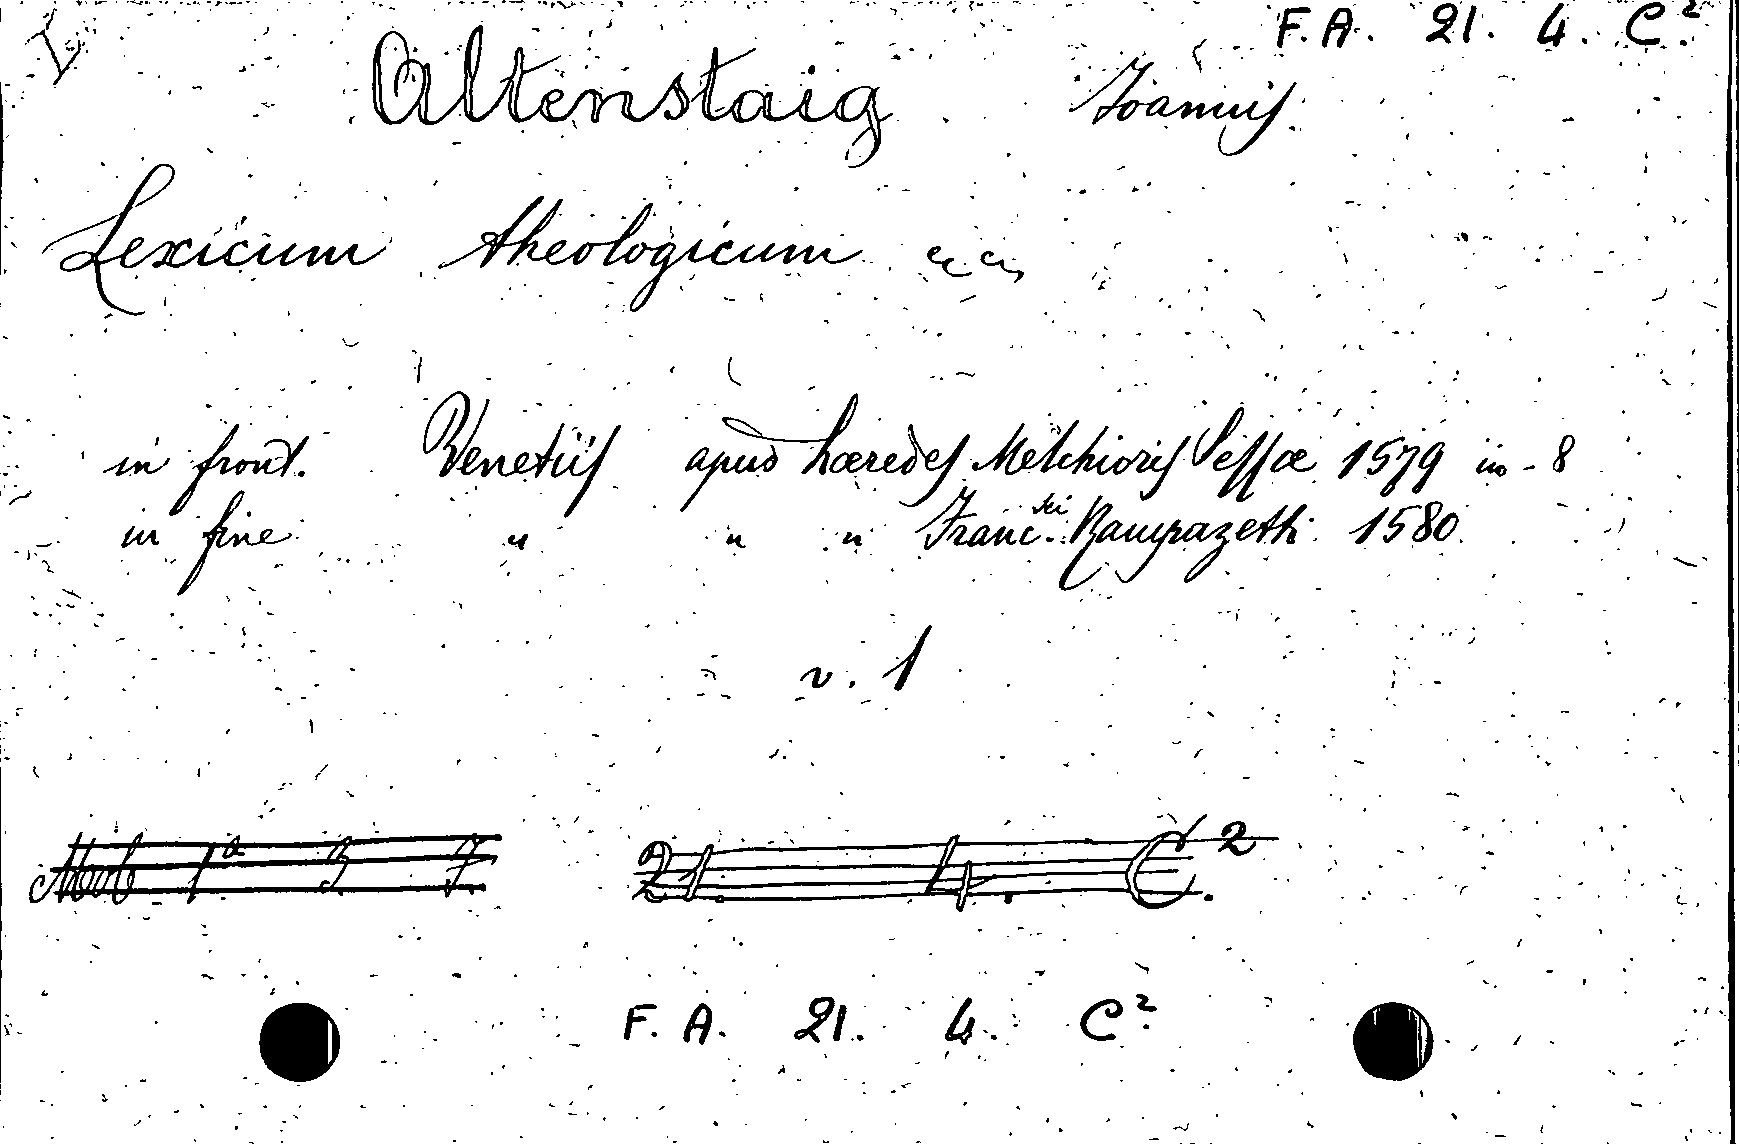 F. A. 21. 4. C.²
Altenstaig Joannis
Lexicum theologicum
in front. Venetiis apud hœredes Melchioris Sessœ 1579 in-8
in fine " " " Franc.sci Rampazetti 1580
v. 1
Mob 1ª 3 7. 21. 4. C.²
F. A. 21. 4. C.²